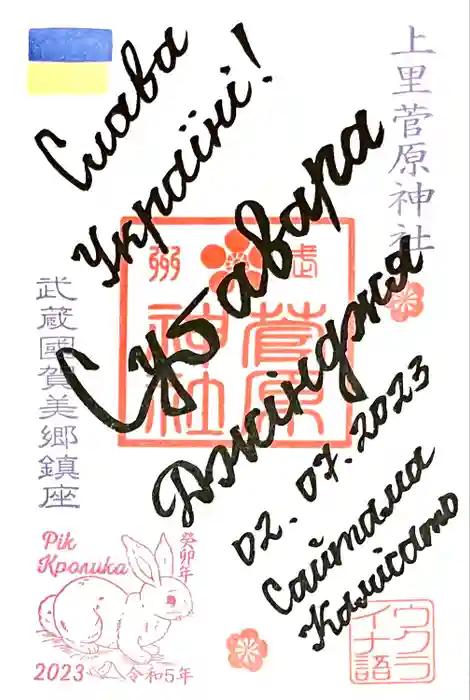 Слава
Україні!
Субавара
Джінджя
02.07.2023
Сайтама
Камісато
上里菅原神社
武州
菅原
神社
武蔵國賀美郷鎮座
Рік
Кролика
癸卯年
2023
令和5年
ウクラ
イナ語